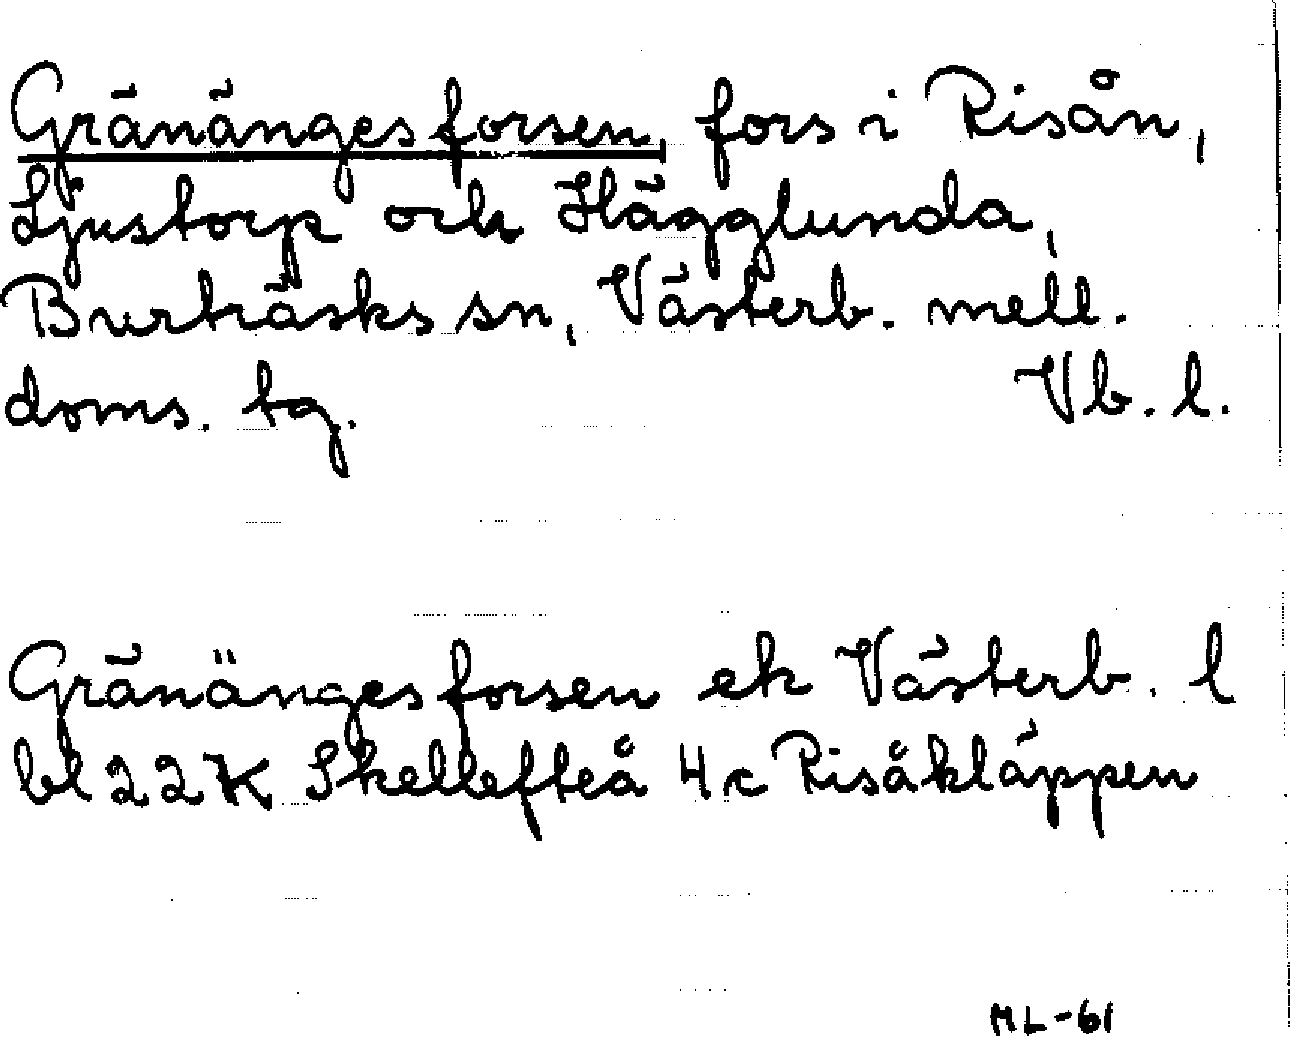 Gränängesforsen, fors i Risån,
Ljustorp och Hägglunda,
Burträsks sn, Västerb. mell.
doms. tg. Vb. l.
Gränängesforsen ek Västerb. l
bl 22K Skellefteå 4c Risåkläppen
ML-61